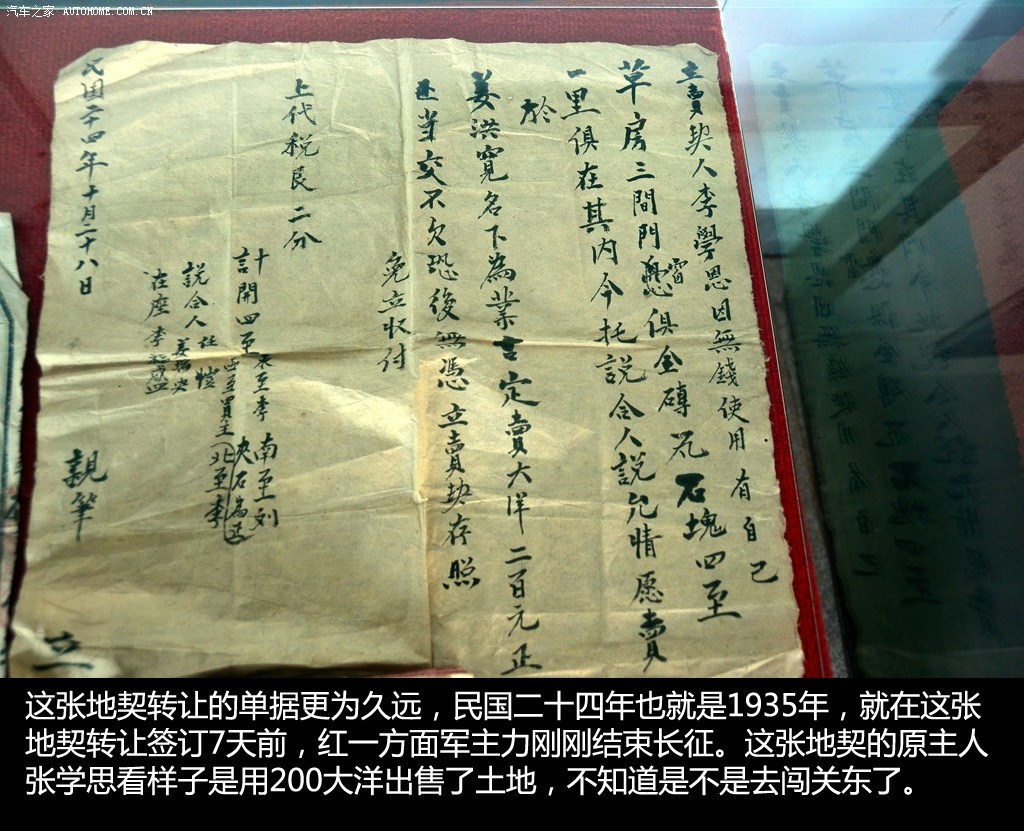 汽车之家 AUTOHOME.COM.CN
立賣契人李學思因無錢使用有自己
草房三間門窗俱全磚瓦石塊四至
一里俱在其内今托説合人説允情愿賣
於
姜洪寛名下為業言定賣大洋二百元正
當交不欠恐後無憑立賣契存照
免立收付
上代税艮二分
計開四至 東至李 南至刘
西至買主 北至李
説合人
在座李
民国二十四年十月二十八日
親筆
立
这张地契转让的单据更为久远，民国二十四年也就是1935年，就在这张
地契转让签订7天前，红一方面军主力刚刚结束长征。这张地契的原主人
张学思看样子是用200大洋出售了土地，不知道是不是去闯关东了。